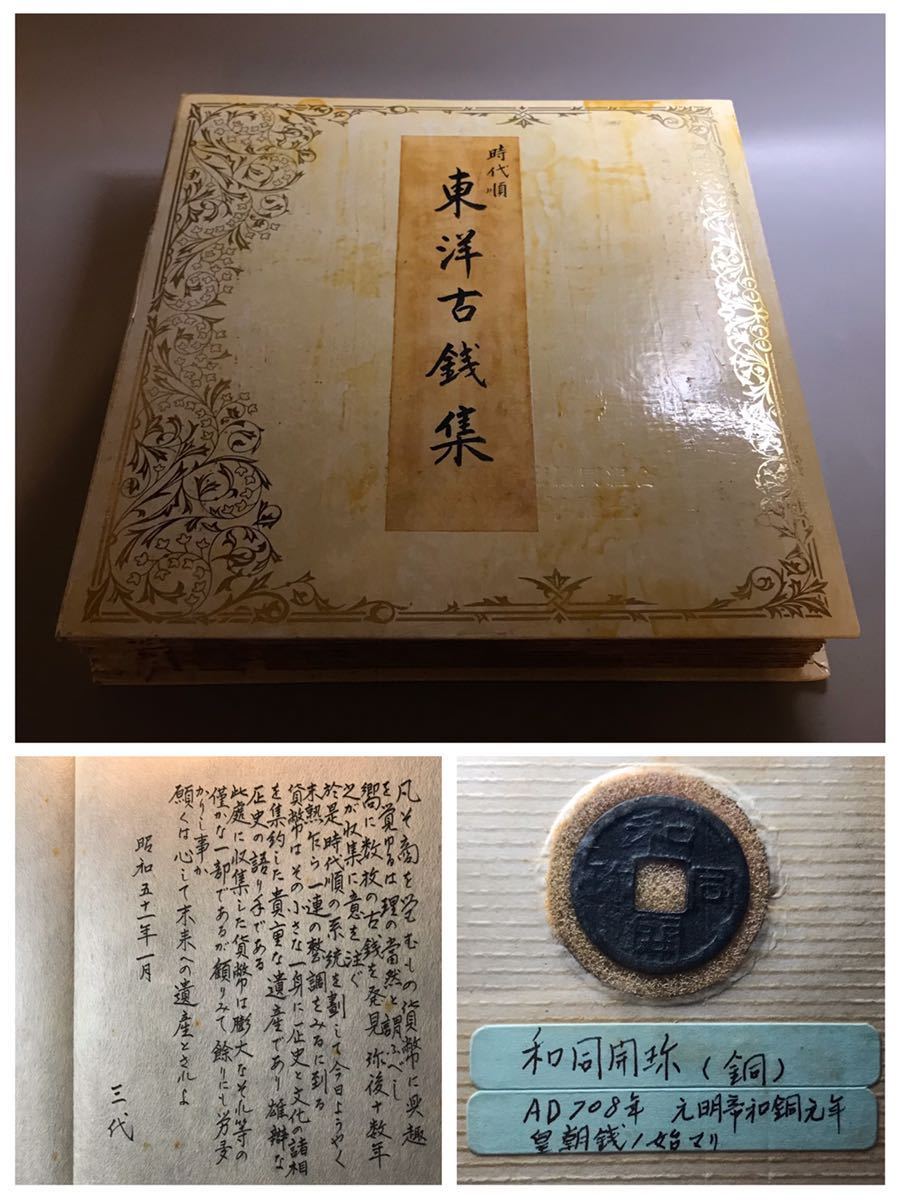 時代順
東洋古銭集
凡そ商を営むもの貨幣に興趣
を覚ゆるは理の當然と謂ふべし
嚮に数枚の古銭を発見 弥後十数年
之が収集に意を注ぐ
於是時代順の系統を劃して今日ようやく
未熟乍ら一連の整調をみるに到る
貨幣はその小さな一身に歴史と文化の諸相
を集約した貴重な遺産であり雄辯な
歴史の語り手である
此處に収集した貨幣は膨大なそれ等の
僅かな一部であるが顧りみて餘りにも労多
かりし事か
願くは心して末来への遺産とされよ
昭和五十一年一月
三代
和同開珎
和同開珎（銅）
AD708年 元明帝和銅元年
皇朝銭ノ始マリ